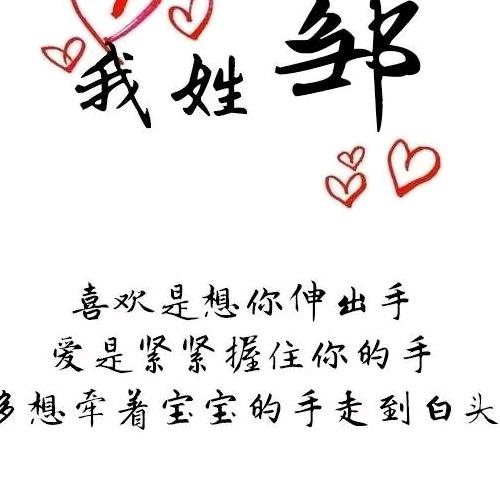 我姓邹
喜欢是想你伸出手
爱是紧紧握住你的手
多想牵着宝宝的手走到白头